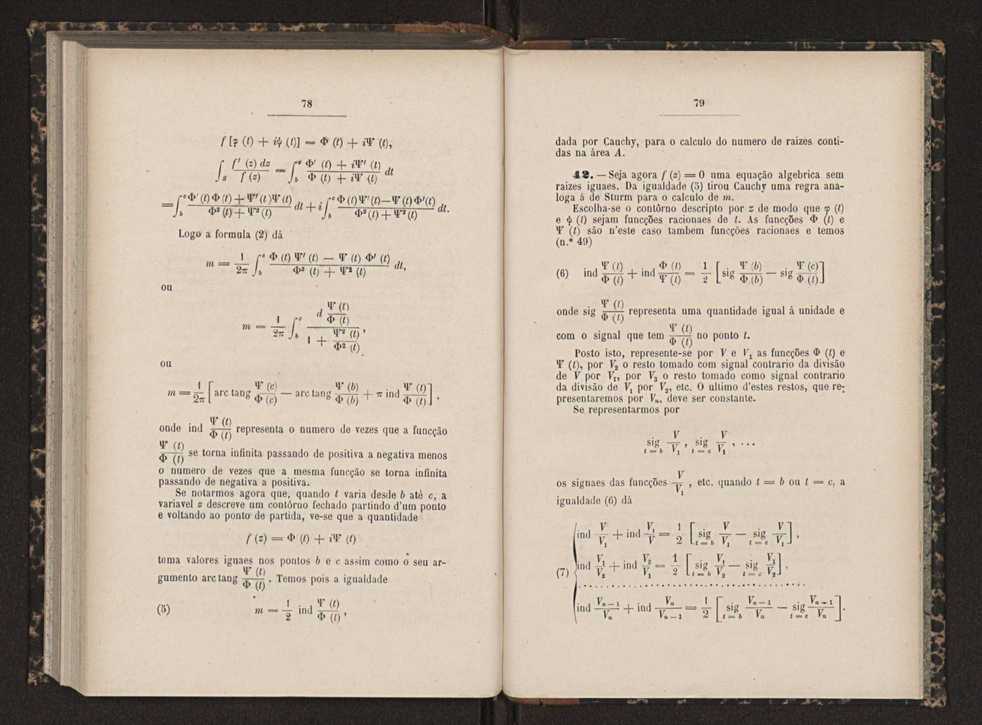 78
f [φ (t) + iψ (t)] = Φ (t) + iΨ (t),
∫_s f' (z) dz / f (z) = ∫_b^c Φ' (t) + iΨ' (t) / Φ (t) + iΨ (t) dt
= ∫_b^c Φ' (t) Φ (t) + Ψ' (t) Ψ (t) / Φ² (t) + Ψ² (t) dt + i ∫_b^c Φ (t) Ψ' (t) — Ψ (t) Φ' (t) / Φ² (t) + Ψ² (t) dt.
Logo a formula (2) dá
m = 1/2π ∫_b^c Φ (t) Ψ' (t) — Ψ (t) Φ' (t) / Φ² (t) + Ψ² (t) dt,
ou
m = 1/2π ∫_b^c d Ψ (t)/Φ (t) / 1 + Ψ² (t)/Φ² (t) ,
ou
m = 1/2π [ arc tang Ψ (c)/Φ (c) — arc tang Ψ (b)/Φ (b) + π ind Ψ (t)/Φ (t) ] ,
onde ind Ψ (t)/Φ (t) representa o numero de vezes que a funcção
Ψ (t)/Φ (t) se torna infinita passando de positiva a negativa menos
o numero de vezes que a mesma funcção se torna infinita
passando de negativa a positiva.
Se notarmos agora que, quando t varia desde b até c, a
variavel z descreve um contôrno fechado partindo d'um ponto
e voltando ao ponto de partida, ve-se que a quantidade
f (z) = Φ (t) + iΨ (t)
toma valores iguaes nos pontos b e c assim como o seu ar-
gumento arc tang Ψ (t)/Φ (t) . Temos pois a igualdade
(5) m = 1/2 ind Ψ (t)/Φ (t) ,
79
dada por Cauchy, para o calculo do numero de raizes conti-
das na área A.
42. — Seja agora f (z) = 0 uma equação algebrica sem
raizes iguaes. Da igualdade (5) tirou Cauchy uma regra ana-
loga á de Sturm para o calculo de m.
Escolha-se o contôrno descripto por z de modo que φ (t)
e ψ (t) sejam funcções racionaes de t. As funcções Φ (t) e
Ψ (t) são n'este caso tambem funcções racionaes e temos
(n.º 49)
(6) ind Ψ (t)/Φ (t) + ind Φ (t)/Ψ (t) = 1/2 [ sig Ψ (b)/Φ (b) — sig Ψ (c)/Φ (t) ]
onde sig Ψ (t)/Φ (t) representa uma quantidade igual á unidade e
com o signal que tem Ψ (t)/Φ (t) no ponto t.
Posto isto, represente-se por V e V₁ as funcções Φ (t) e
Ψ (t), por V₂ o resto tomado com signal contrario da divisão
de V por V₁, por V₃ o resto tomado como signal contrario
da divisão de V₁ por V₂, etc. O ultimo d'estes restos, que re-
presentaremos por Vₙ, deve ser constante.
Se representarmos por
sig_{t = b} V/V₁ , sig_{t = c} V/V₁ , ...
os signaes das funcções V/V₁ , etc. quando t = b ou t = c, a
igualdade (6) dá
ind V/V₁ + ind V₁/V = 1/2 [ sig_{t = b} V/V₁ — sig_{t = c} V/V₁ ] ,
(7) ind V₁/V₂ + ind V₂/V₁ = 1/2 [ sig_{t = b} V₁/V₂ — sig_{t = c} V₁/V₂ ] .
. . . . . . . . . . . . . . . . . . . . . . . . . . . . . .
ind Vₙ₋₁/Vₙ + ind Vₙ/Vₙ₋₁ = 1/2 [ sig_{t = b} Vₙ₋₁/Vₙ — sig_{t = c} Vₙ₋₁/Vₙ ] .